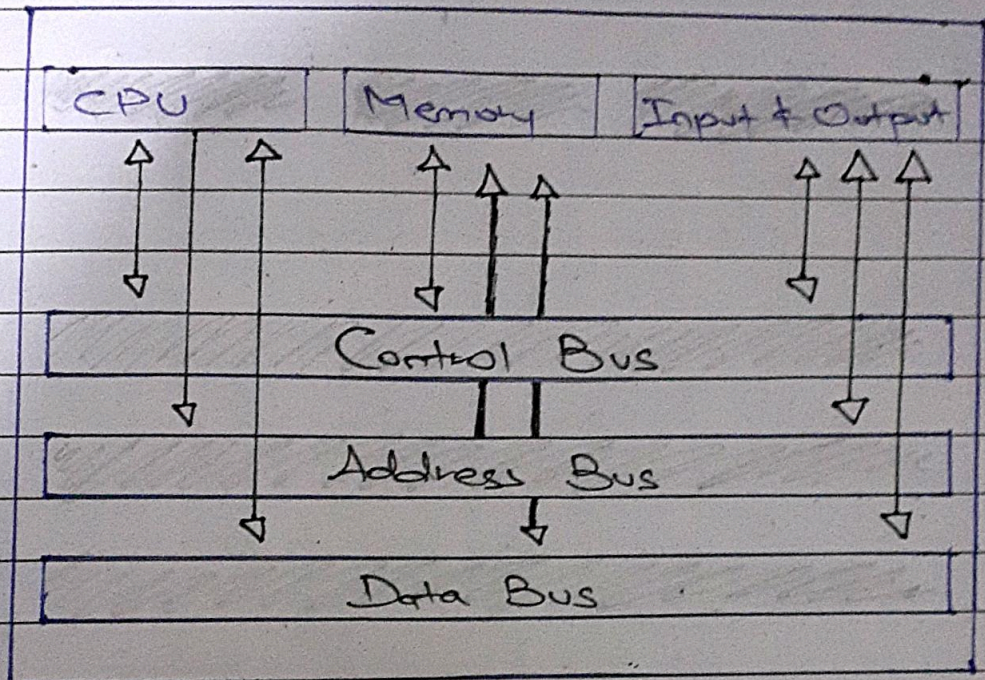 CPU Memory Input & Output
Control Bus
Address Bus
Data Bus